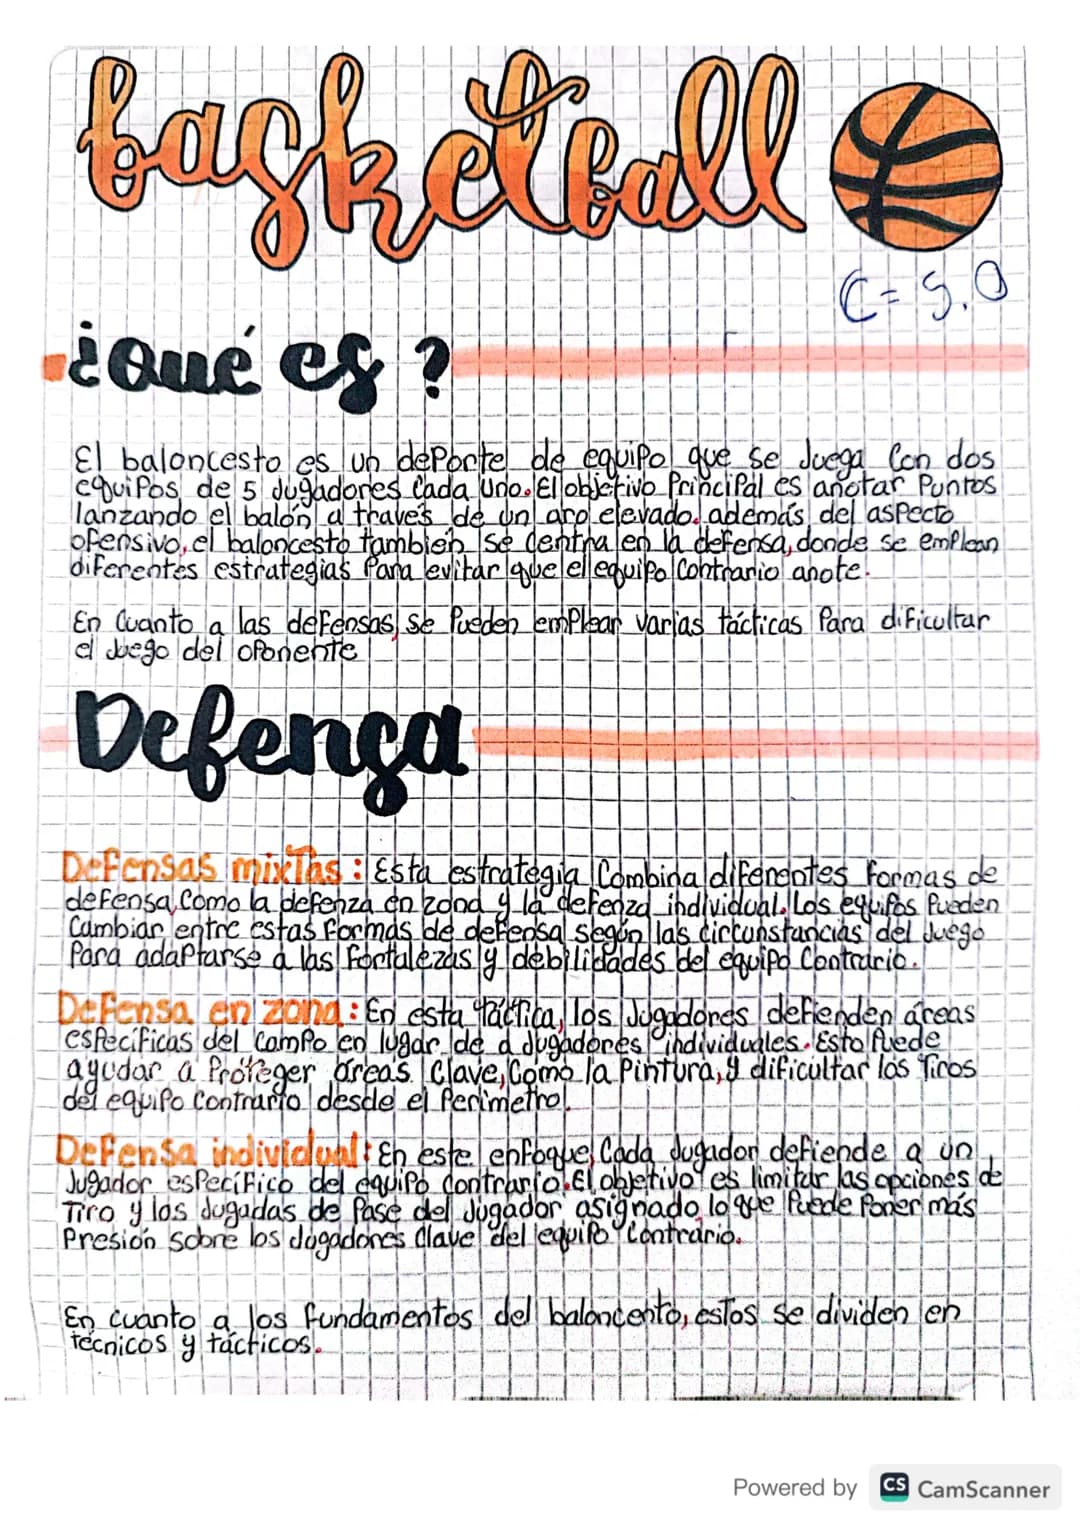 basketball
C= 5.0
¿Qué es?
El baloncesto es un deporte de equipo que se Juega Con dos
equipos de 5 Jugadores Cada Uno. El objetivo Principal es anotar Puntos
lanzando el balón a través de un aro elevado. además del aspecto
ofensivo, el baloncesto tambien se centra en la defensa, donde se emplean
diferentes estrategias Para evitar que el equipo Contrario anote.
En Cuanto a las defensas, se Pueden emplear varias tácticas Para dificultar
el Juego del oponente
Defensa
Defensas mixTas: Esta estrategia Combina diferentes formas de
defensa, Como la defenza en zona y la defenza individual. Los equipos Pueden
Cambiar entre estas formas de defensa según las circunstancias del Juego
Para adaptarse a las fortalezas y debilidades del equipo Contrario.
Defensa en zona: En esta táctica, los Jugadores defienden áreas
específicas del Campo en lugar de a Jugadores individuales. Esto Puede
ayudar a Proteger áreas Clave, Como la Pintura, y dificultar los Tiros
del equipo Contrario desde el Perimetro.
Defensa individual: En este enfoque, Cada Jugador defiende a un
Jugador específico del equipo contrario. El objetivo es limitar las opciones de
Tiro y las Jugadas de Pase del Jugador asignado, lo que Puede Poner más
Presión sobre los Jugadores Clave del equipo Contrario.
En cuanto a los fundamentos del baloncento, estos se dividen en
técnicos y tácticos.
Powered by CS CamScanner